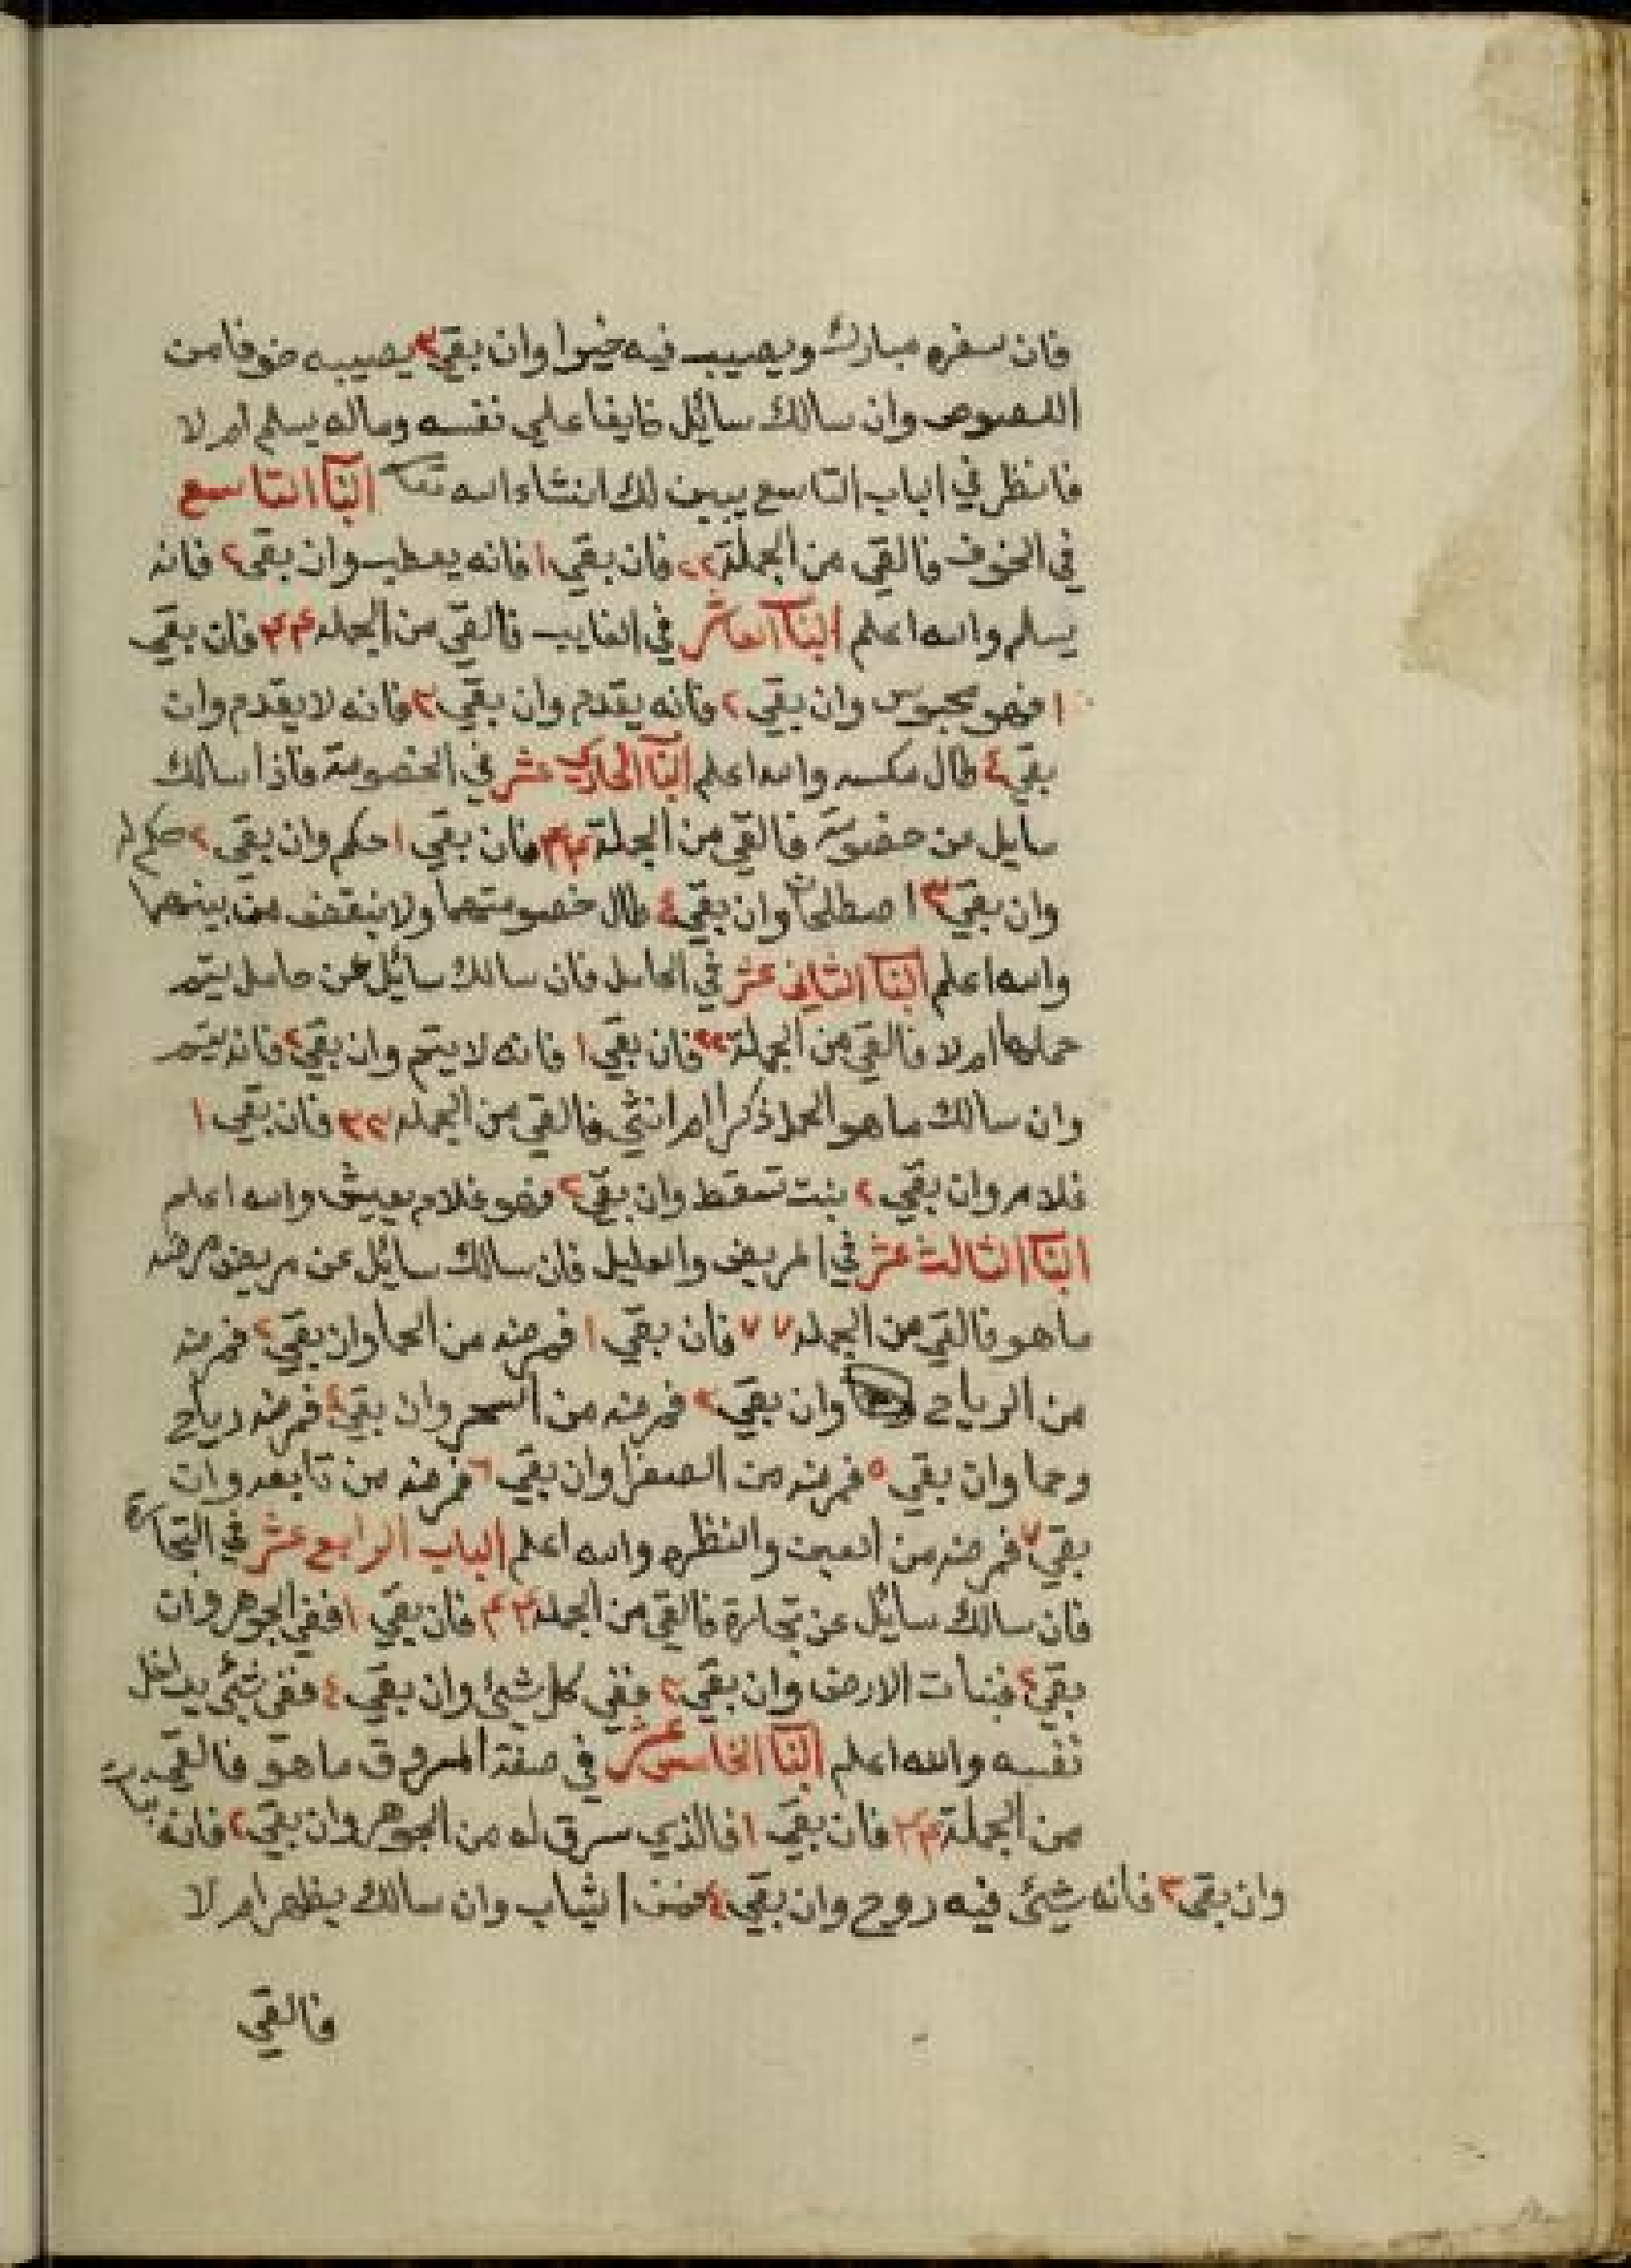 فان سفره مبارك ويصيب فيه خيرا وان بقي ٣ يصيبه خوفا من
اللصوص وان سالك سائل خايفا علي نفسه وماله يسلم ام لا
فانظر في اباب التاسع يبين لك انشاء الله تعا البا التاسع
في الخوف فالقي من الجملة ٢٢ فان بقي ١ فانه يعطب وان بقي ٢ فانه
يسلم والله اعلم البا العاشر في الغايب فالقي من الجمله ٤٤ فان بقي
١ فهو محبوس وان بقي ٢ فانه يقدم وان بقي ٣ فانه لا يقدم وان
بقي ٤ طال مكسه والله اعلم البا الحادي عشر في الخصومة فاذا سالك
سايل عن خصومة فالقي من الجملة ٤٤ فان بقي ١ حكم وان بقي ٢ حكم له
وان بقي ٣ اصطلحا وان بقي ٤ طال خصومتهما ولا ينقضى من بينهما
والله اعلم البا الثاني عشر في الحامل فان سالك سائل عن حامل يتم
حملها ام لا فالقي من الجملة ٢٢ فان بقي ١ فانه لا يتم وان بقي ٢ فانه يتم
وان سالك ما هو الحمل ذكرا ام انثي فالقي من الجمله ٣٣ فان بقي ١
غلام وان بقي ٢ بنت تسقط وان بقي ٣ فهو غلام يعيش والله اعلم
البا الثالث عشر في المريض والعليل فان سالك سائل عن مريض مرضه
ما هو فالقي من الجمله ٧٧ فان بقي ١ فمرضه من الحما وان بقي ٢ فمرضه
من الرياح وان بقي ٣ فمرضه من السحر وان بقي ٤ فمرضه رياح
وحما وان بقي ٥ فمرضه من الصفرا وان بقي ٦ فمرضه من تابعه وان
بقي ٧ فمرضه من العين والنظره والله اعلم الباب الرابع عشر في التجارة
فان سالك سائل عن تجارة فالقي من الجمله ٤٤ فان بقي ١ ففي الجوهر وان
بقي ٢ فنبات الارض وان بقي ٣ ففي كل شيئ وان بقي ٤ ففي شيئ يداخل
نفسه والله اعلم البا الخامس عشر في صفة المسروق ما هو فالقي
من الجملة ٤٤ فان بقي ١ فالذي سرق له من الجوهر وان بقي ٢ فانه نبات
وان بقي ٣ فانه شيئ فيه روح وان بقي ٤ فمن الثياب وان سالك يظهر ام لا
فالقي